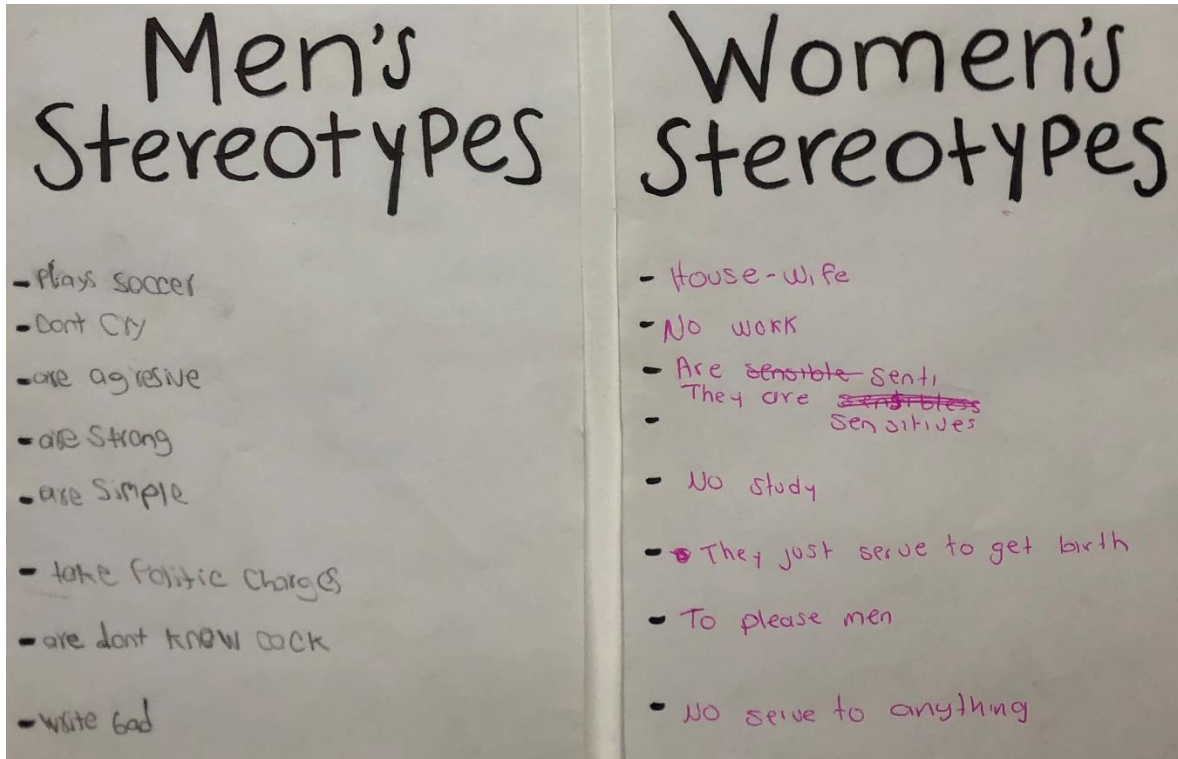 Men's
Stereotypes
- Plays soccer
- Dont Cry
- are agresive
- are Strong
- are Simple
- take Politic Charges
- are dont know cock
- write bad
Women's
Stereotypes
- House-wife
- No work
- Are sensible senti
They are sensibless
- sensitives
- No study
- They just serve to get birth
- To please men
- No serve to anything